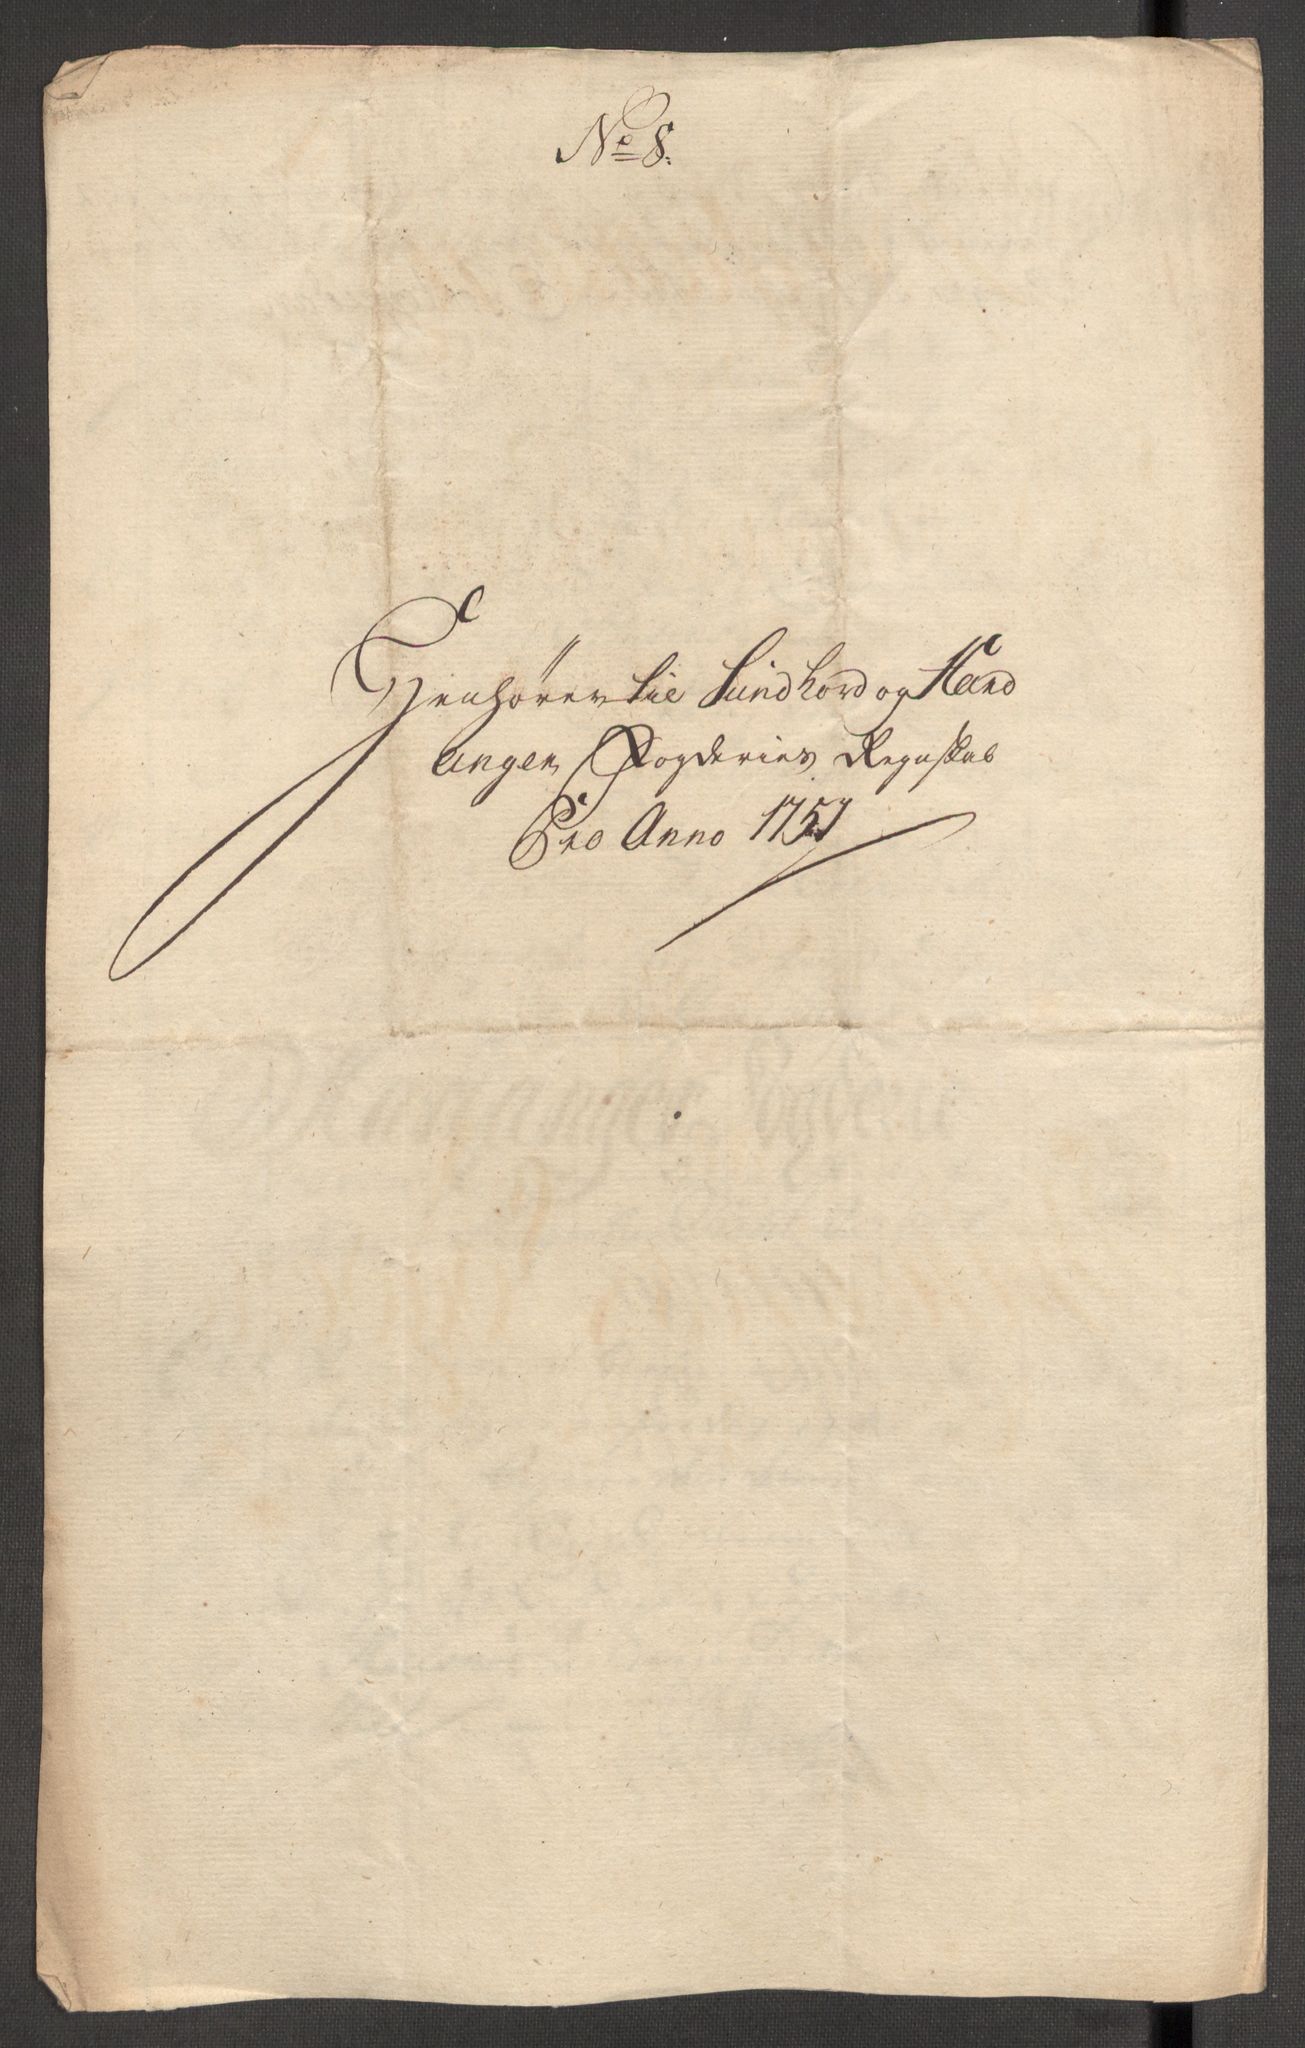 No 8.
Henhörer til Sundhord og Hard
anger Fogderies Regnskab
Pro Anno 1757